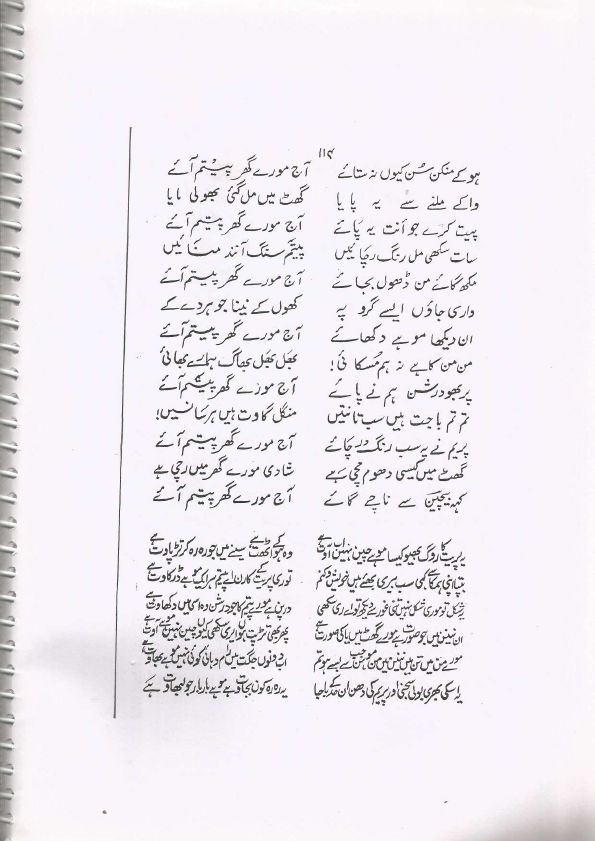 ۱۱۴
ہو کے منکن سُن کیوں نہ ستائے آج مورے گھر پیتم آئے
واکے ملنے سے یہ پایا گھٹ میں مل گئی بھولی مایا
پیت کرے جو اَنت یہ پائے آج مورے گھر پیتم آئے
سات سکھی مل رنگ رچائیں پیتم سنگ آنند منائیں
مکھ گائے من ڈھول بجائے آج مورے گھر پیتم آئے
واری جاؤں ایسے گرو پہ کھول کے نینا جو ہردے کے
ان دیکھا موہے دکھائے آج مورے گھر پیتم آئے
من من کاہے نہ ہم مُسکائی! بھل بھل بھاگ ہمارے بھائی
پربھو درشن ہم نے پائے آج مورے گھر پیتم آئے
تم تم باجت ہیں سب تانتیں منگل گاوت ہیں ہر سانسیں!
پریم نے یہ سب رنگ رچائے آج مورے گھر پیتم آئے
گھٹ میں کیسی دھوم مچی ہے شادی مورے گھر میں رچی ہے
کہہ بیچین سے ناچے گائے آج مورے گھر پیتم آئے
یہ پریت کا روگ بھیو کیسا موہے چین نہیں اب آوت ہے وہ ہوا اٹھت سینے میں جو رہ رہ کر تڑپاوت ہے
بپتا پڑی ہمکا سے کہی سب بیری بھئے ہیں خویش و کنم توری پریت کے کارن اے پیتم ہر ایک موہے ڈرکاوت ہے
یہ شکل تو موری شکل نہیں تنی غور سے دیکھ تو اے ری سکھی درپن ہے مورے پیتم کا جو درشن وہ اسی میں دکھاوت ہے
ان نینن میں جو صورت ہے مورے گھٹ میں با کی مورت ہے پھر بھی تڑپت ہوں اے ری سکھی کیوں چین نہیں مجھے آوت ہے
مورے من میں تن میں نینن میں من موہن جب سے بسے ہو تم اب دونوں جگت میں رام دوہائی کوئی نہیں موہے بھاوت ہے
یہ اسکی بھری بولی سجنی اور پریم کی دھن ان حد باجا یہ رہ رہ کون بجاوت ہے موہے بار بار جو لبھاوت ہے